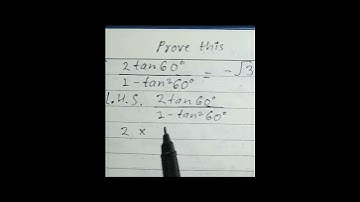 Prove this
2tan60° / 1-tan²60° = -√3
L.H.S. 2tan60° / 1-tan²60°
2 ×